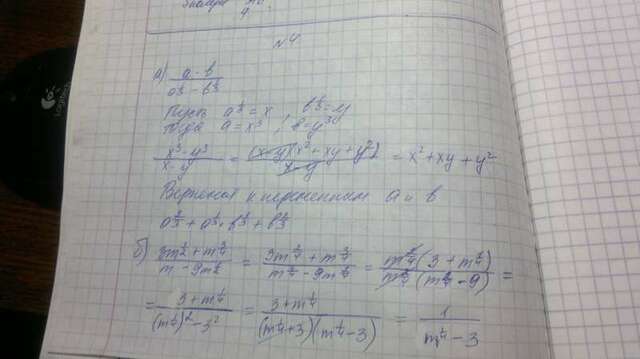 №4
а) (a - b)/(a^{1/3} - b^{1/3})
Пусть a^{1/3} = x ; b^{1/3} = y
тогда a = x³ ; b = y³
(x³ - y³)/(x - y) = ((x - y)(x² + xy + y²))/(x - y) = x² + xy + y²
Вернемся к переменным a и b
a^{2/3} + a^{1/3} · b^{1/3} + b^{2/3}
б) (3m^{1/2} + m^{3/4})/(m - 9m^{1/2}) = (3m^{2/4} + m^{3/4})/(m^{4/4} - 9m^{2/4}) = (m^{2/4}(3 + m^{1/4}))/(m^{2/4}(m^{2/4} - 9)) =
= (3 + m^{1/4})/((m^{1/4})² - 3²) = (3 + m^{1/4})/((m^{1/4} + 3)(m^{1/4} - 3)) = 1/(m^{1/4} - 3)
Logitech